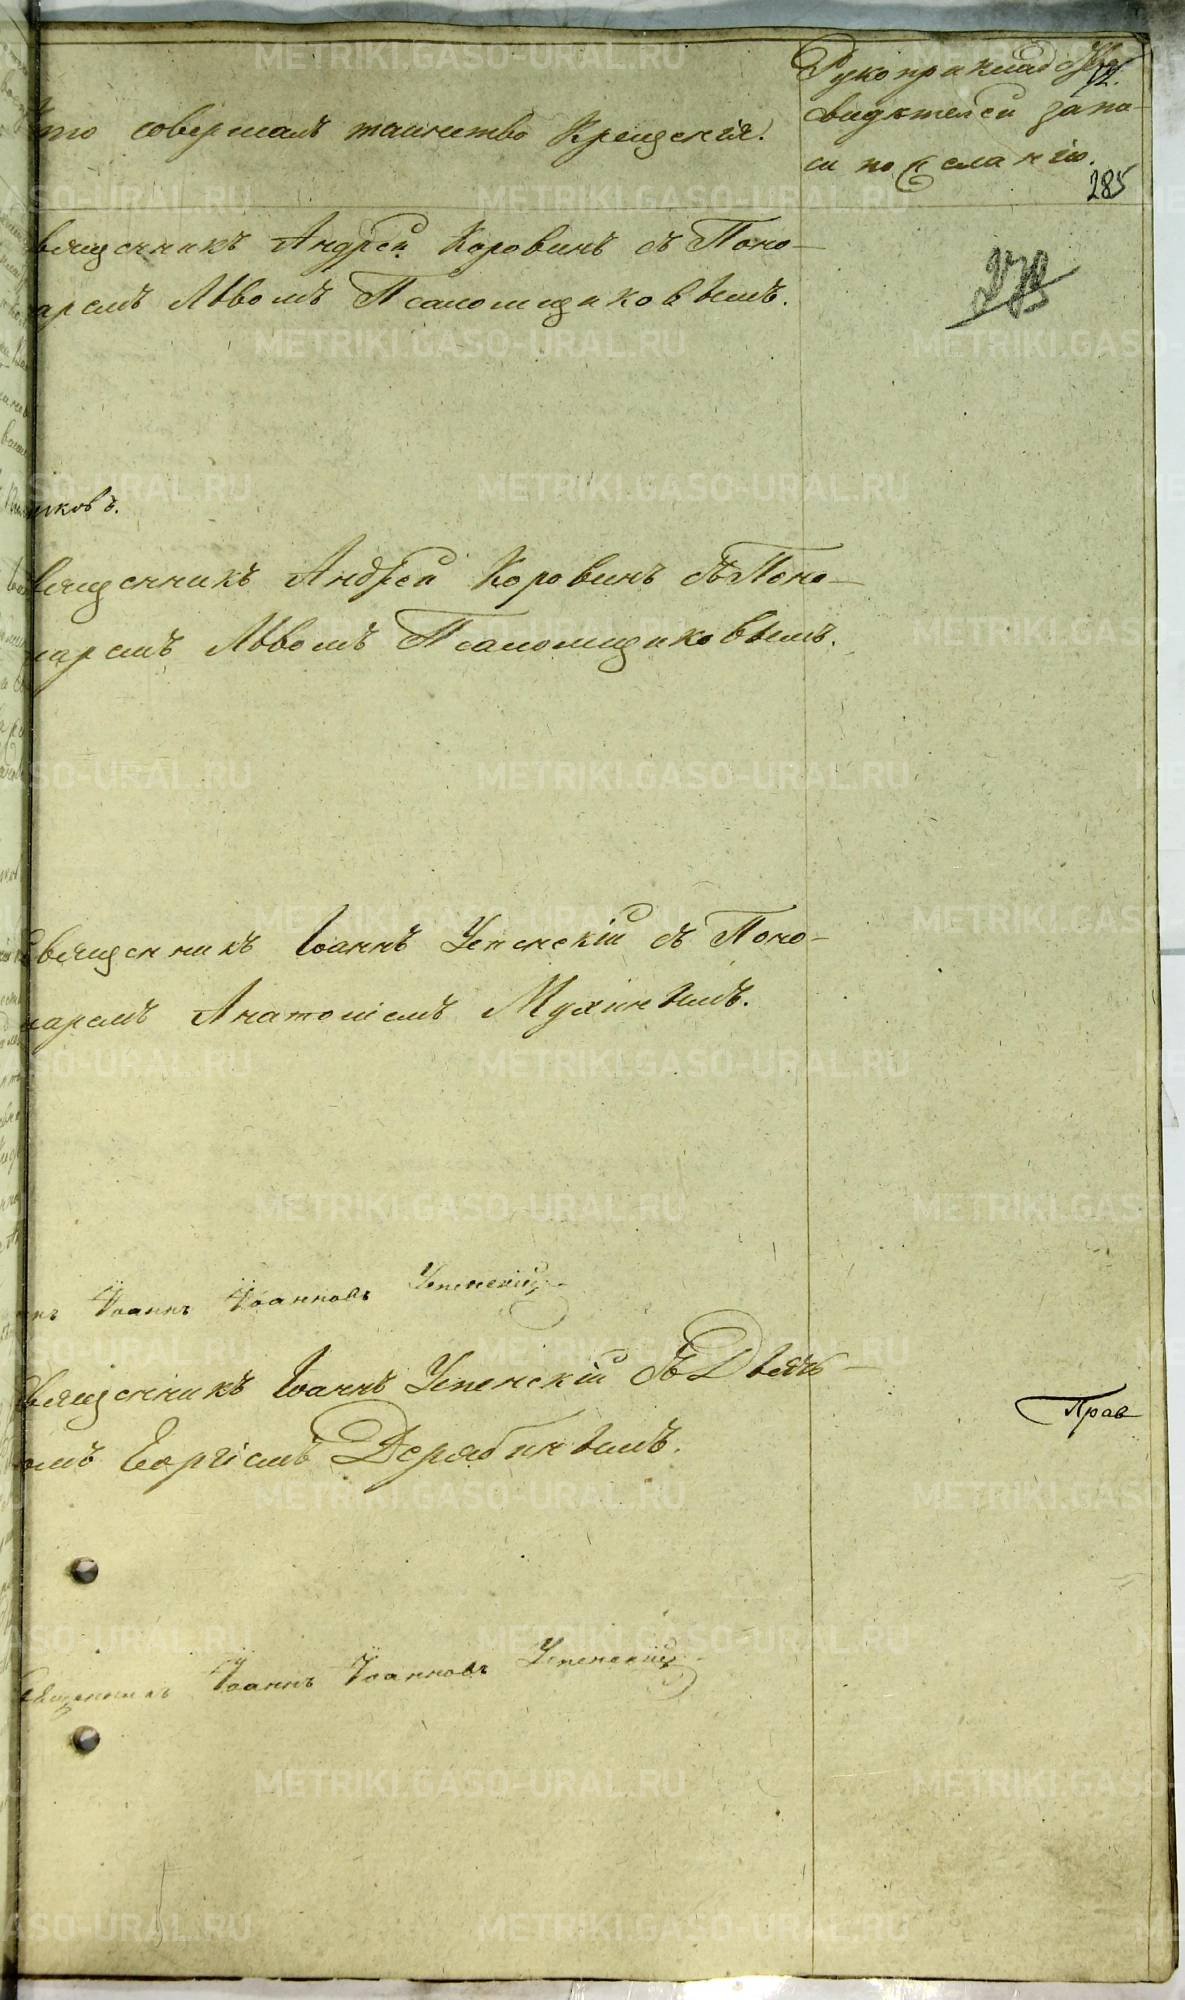 Кто совершалъ таинство Крещенія.
Рукоприкладство
свидѣтелей запи-
си по желанію.
285
вященникъ Андрей Коровинъ съ Поно-
аремъ Львомъ Псаломщиковымъ.
иковъ.
вященникъ Андрей Коровинъ съ Поно-
маремъ Львомъ Псаломщиковымъ.
Священникъ Іоаннъ Успенскій съ Поно-
маремъ Анатоліемъ Мухинымъ.
Іоаннъ Іоанновъ Успенскій
Священникъ Іоаннъ Успенскій съ Дьяч-
комъ Георгіемъ Дерябинымъ.
Прав
Священникъ Іоаннъ Іоанновъ Успенскій
METRIKI.GASO-URAL.RU